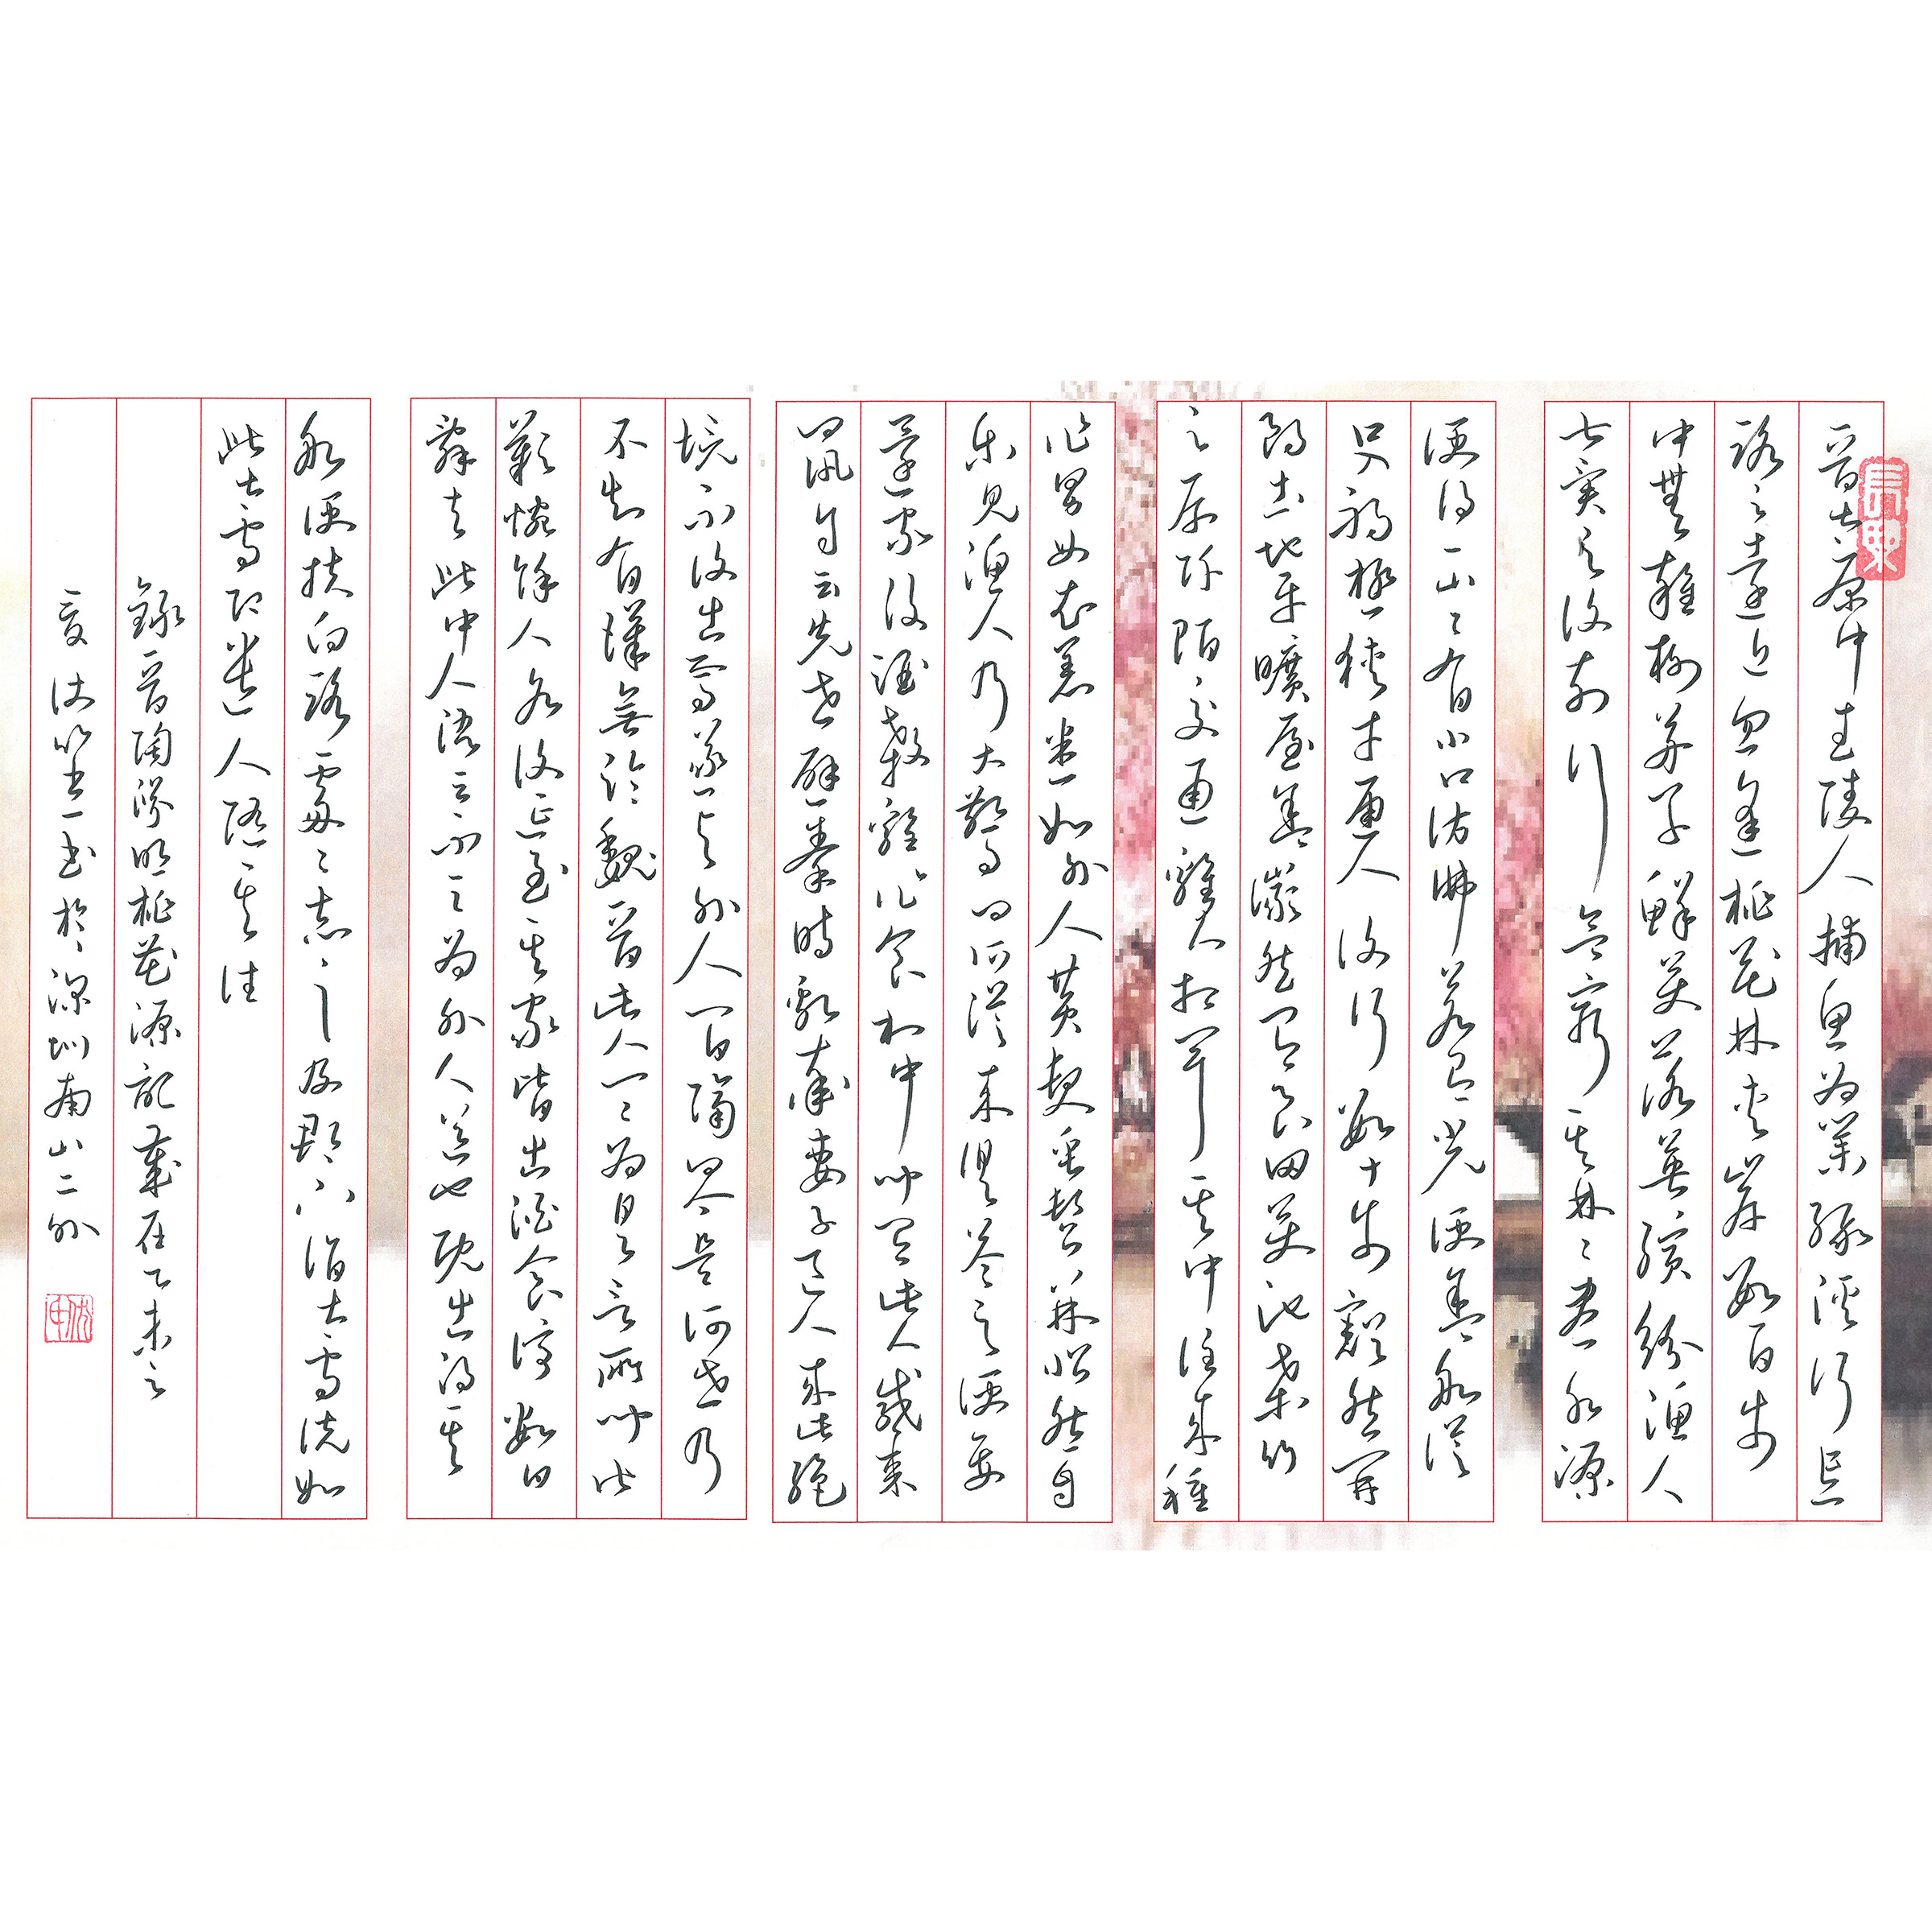 晉太原中武陵人捕魚為業緣溪行忘
路之遠近忽逢桃花林夾岸數百步
中無雜樹芳草鮮美落英繽紛漁人
甚異之復前行欲窮其林〻盡水源
便得一山〻有小口彷彿若有光便舍船從
口入初極狹才通人復行數十步豁然開
朗土地平曠屋舍儼然有良田美池桑竹
之屬阡陌交通雞犬相聞其中往來種
作男女衣著悉如外人黃髮垂髫並怡然自
樂見漁人乃大驚問所從來具答之便要
還家設酒殺雞作食村中聞有此人咸來
問訊自云先世避秦時亂率妻子邑人來此絕
境不復出焉遂與外人間隔問今是何世乃
不知有漢無論魏晉此人一〻為具言所聞皆
歎惋餘人各復延至其家皆出酒食停數日
辭去此中人語云不足為外人道也既出得其
船便扶向路處〻志之及郡下詣太守說如
此太守即遣人隨其往
錄晉陶淵明桃花源記歲在乙未之
夏書於深圳南山二外